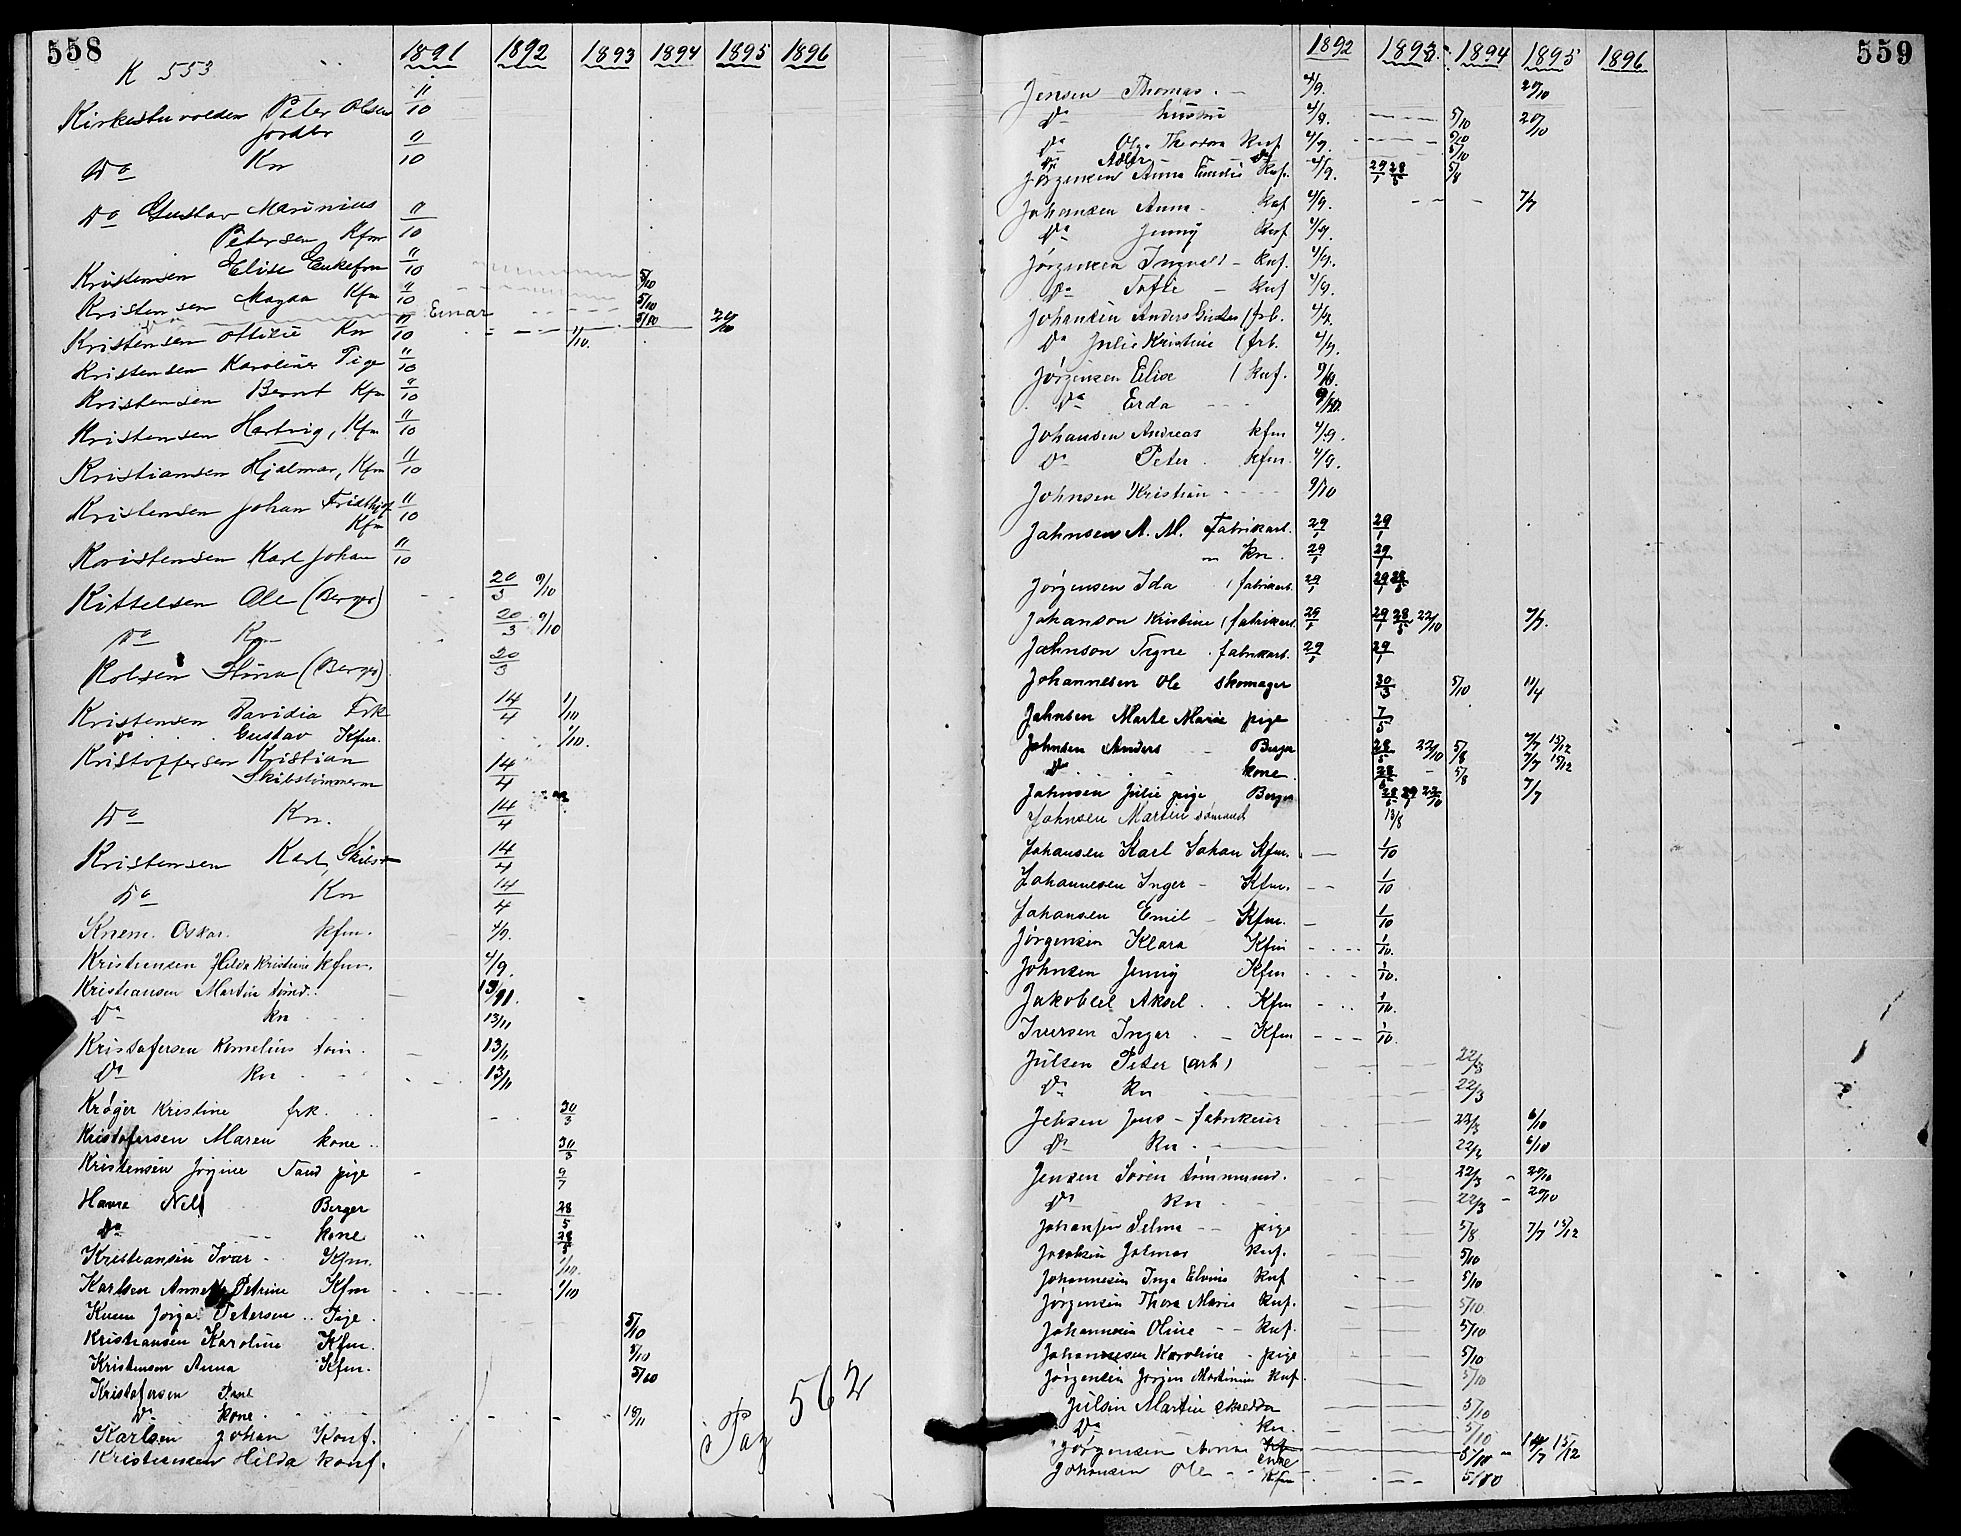 558
K 553
1891 1892 1893 1894 1895 1896
Peter Olsen 11/10
Jordbr
Do Kn 11/10
Do Gustav Marinius 11/10
Petersen Kfm
Kristensen Elise Enkefru 11/10 5/10
Kristensen Magda Kfm 11/10 5/10
Do Einar 5/10
Kristensen Ottilie Kn 11/10 1/10. 20/10
Kristensen Karoline Pige 11/10
Kristensen Bernt Kfm 11/10
Kristensen Hartvig, Kfm 11/10
Kristiansen Hjalmar, Kfm 11/10
Kristensen Johan Fridthjof 11/10
Kfm
Kristensen Karl Johan 11/10
Kittelsen Ole (Berger) 20/3 9/10
Do Kn 20/3 9/10
Stina (Berger) 20/3
Kristensen Davidia Frk 14/4 1/10
Do Gustav Kfm. 1/10.
Kristoffersen Kristian 14/4
Skibstømmerm
Do Kn. 14/4
Kristensen Karl, 14/4
Do Kn 14/4
Knem. Oskar. kfm. 4/9.
Kristiansen Hilda Kristine kfm. 4/9.
Kristiansen Martin tømd. 13/11.
Do kn 13/11
Kristofersen Kornelius tøm. 13/11
Do kn 13/11
Krøger Kristine frk. 30/3
Kristofersen Maren kone 30/3
Kristensen Jørgine pige 9/7
Havre Nels Berger 28/5
Do kone 28/5
Kristiansen Ivar Kfm. 1/10.
Karlsen Petrine Kfm 1/10
Knem Petersen Pige 5/10
Kristiansen Karoline Kfm. 5/10
Kristensen Anna Kfm. 5/10
Kristofersen
Do kone 18/11
Karlsen Johan Konf.
Kristiansen Hilda konf.
Pag 562
559
1892 1893 1894 1895 1896
Jensen Thomas. 4/9. 20/10
Do hustru 4/9. 5/10 20/10
Do Olga Theodora Knf 4/9. 5/10
Do Do 5/10
Jørgensen Anna Emilie Knf. 4/9. 29/1 28/5 5/8
Johansen Anna Knf 4/9. 7/7
Do Jenny Knf 4/9.
Jørgensen Ingvald Knf. 4/9.
Do Tofte Knf 4/9.
Johansen Anders Gustav (frb. 4/9.
Do Julie Kristine (frb. 4/9.
Jørgensen Elise (Knf. 9/10.
Do Erda 9/10.
Johansen Andreas kfm 4/9.
Do Peter. kfm. 4/9.
Johnsen Kristian 9/10
Jahnsen A. M. Fabrikarb. 29/1 29/1
" Kn. 29/1 29/1
Jørgensen Ida (fabrikarb. 29/1 29/1 28/5
Johanson Kristine (fabrikarb. 29/1 29/1 28/5 22/10 7/7.
Jahnson Signe. fabrikarb. 29/1 29/1
Johannesen Ole Skomager 30/3 5/10 11/4
Jahnsen Marte Marie pige 7/5
Johnsen Anders Berger 28/5 22/10 5/8 7/7 15/12
Do kone 28/5 5/8 7/7 15/12
Johnsen Julie pige Berger 28/5 29/1 22/10 7/7
Johnsen Martin sømand 13/8
Johansen Karl Johan Kfm. 1/10
Johannesen Inger Kfm. 1/10
Johansen Emil Kfm. 1/10
Jørgensen Klara Kfm 1/10.
Johnsen Jenny Kfm 1/10.
Aksel Kfm 1/10.
Iversen Inger Kfm 1/10.
Julsen Peter (arb) 22/3
Do Kn 22/3
Jebsen Jens fabrikeier 22/3 6/10
Do Kn. 22/3 6/10
Jensen Søren tømmermd. 22/3 20/10
Do Kn 22/3 20/10
Johansen Selma pige 5/8 7/7 15/12
Jacobsen Knf. 5/10
Johannesen Inga Elvine Knf 5/10
Jørgensen Thora Marie Knf. 5/10
Johannesen Oline Knf. 5/10
Johannesen Karoline pige 5/10
Jørgensen Jørgen Martinius Knf 5/10
Julsen Martin skredder 5/10
Do Kn. 5/10
Jørgensen Anna enke 5/10 15/12
Johansen Ole Kfm 5/10